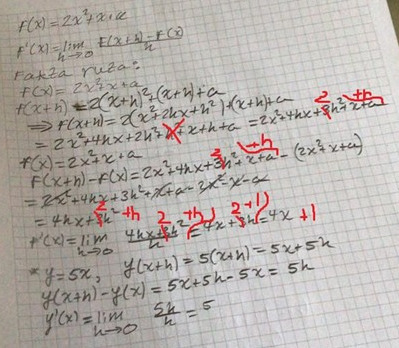 f(x)=2x²+x+a
f'(x)=lim h→0 f(x+h)-f(x)/h
f(x)=2x²+x+a
f(x+h)=2(x+h)²+(x+h)+a
⇒f(x+h)=2(x²+2hx+h²)+(x+h)+a
=2x²+4hx+2h²+x+h+a=2x²+4hx+2h²+x+a+h
f(x)=2x²+x+a
f(x+h)-f(x)=2x²+4hx+2h²+x+a+h-(2x²+x+a)
=2x²+4hx+3h²+x+a-2x²-x-a
=4hx+2h²+h
f'(x)=lim h→0 4hx+2h²+h/h=4x+2h+1=4x+1
* y=5x, y(x+h)=5(x+h)=5x+5h
y(x+h)-y(x)=5x+5h-5x=5h
y'(x)=lim h→0 5h/h=5